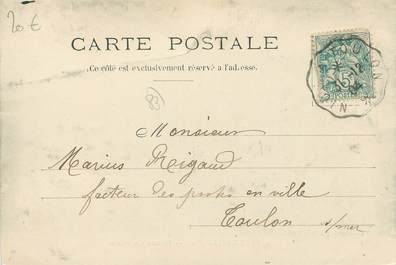 20 €
CARTE POSTALE
Ce côté est exclusivement réservé a l'adresse.
83
TOULON
5
Monsieur
Marius Rigaud
facteur des postes en ville
Toulon s/mer